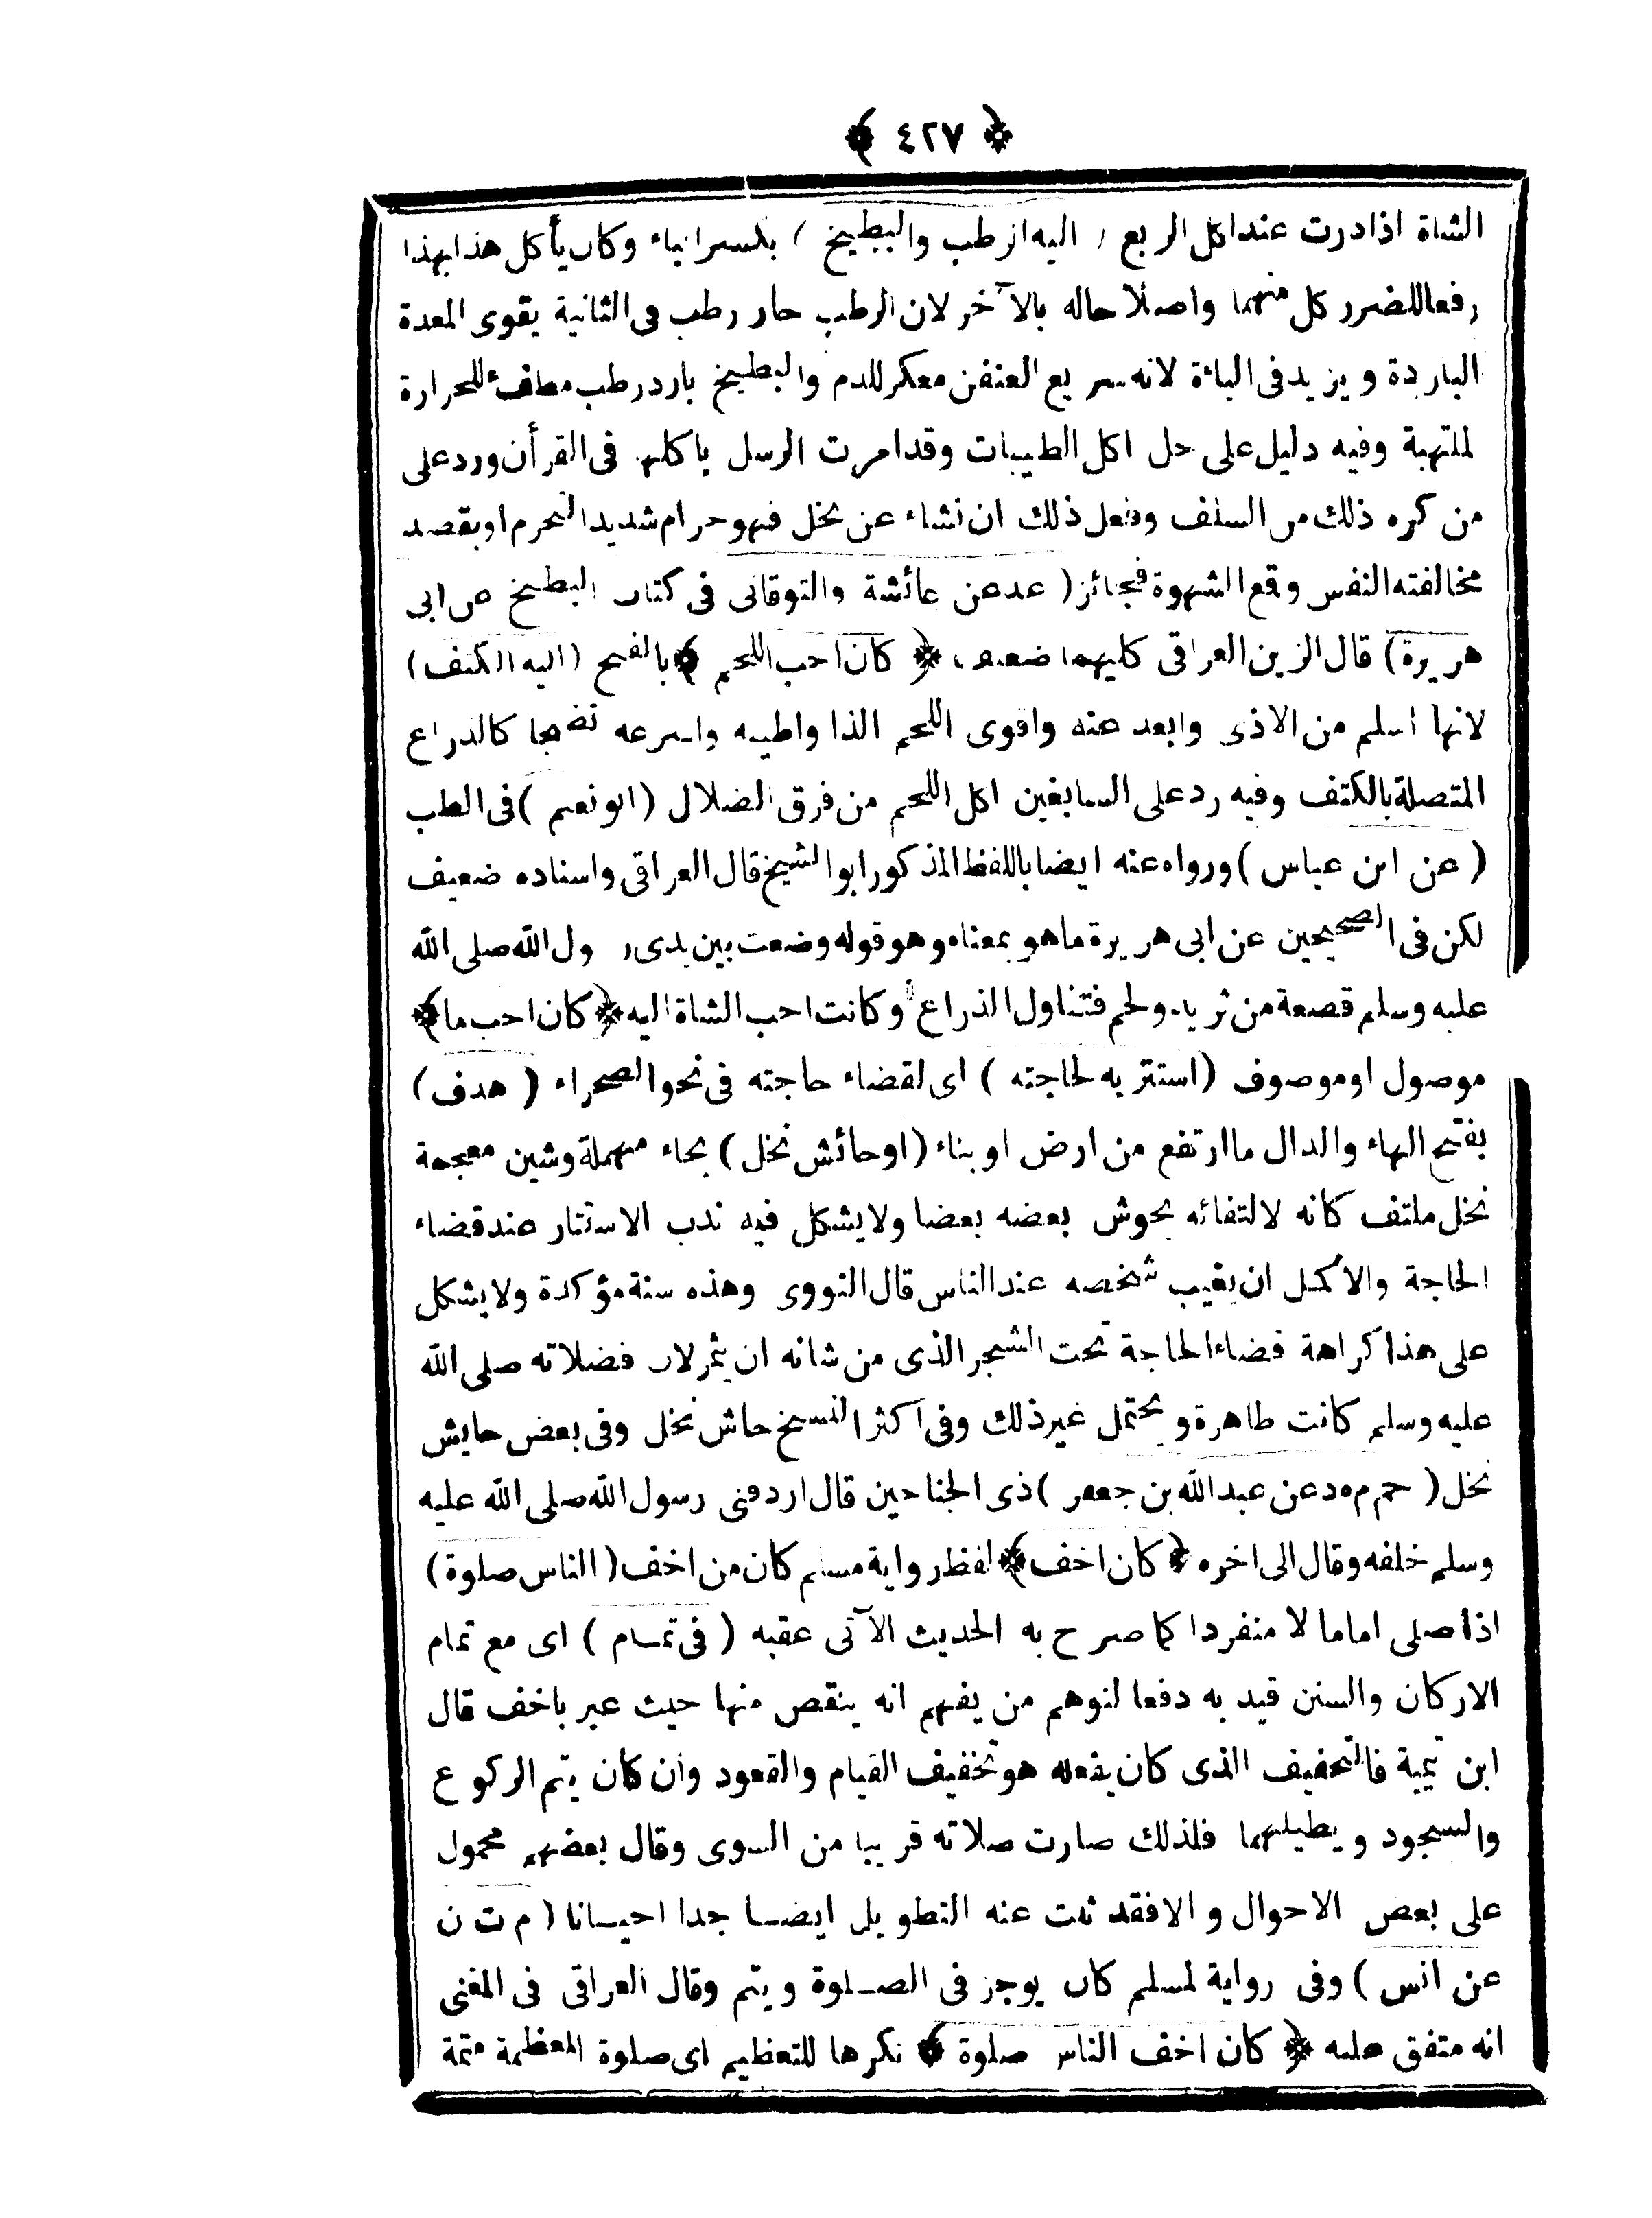 ﴿ ٤٢٧ ﴾
الشاة اذا درت عند اكل الربع ( اليه الرطب والبطيخ ) بكسر الباء وكان يأكل هذا بهذا
رفعا للضرر كل منهما واصلا حاله بالآخر لان الرطب حار رطب فى الثانية يقوى المعدة
الباردة ويزيد فى الباءة لانه سريع العفن معكر للدم والبطيخ بارد رطب مطفئ للحرارة
لملتهبة وفيه دليل على حل اكل الطيبات وقد امرت الرسل باكلها فى القرأن ورد على
من كره ذلك من السلف وفعل ذلك ان نشاء عن بخل فهو حرام شديد التحرم او بقصد
مخالفته النفس وقع الشهوة فجائز ( عد عن عائشة والتوقانى فى كتاب البطيخ عن ابى
هريرة ) قال الزين العراقى كليهما ضعيف ، ﴿ كان احب اللحم ﴾ بالفتح ( اليه الكتف )
لانها اسلم من الاذى وابعد عنه واقوى اللحم الذا واطيبه واسرعه نضجا كالذراع
المتصلة بالكتف وفيه رد على السابغين اكل اللحم من فرق الضلال ( ابو نعيم ) فى الطب
( عن ابن عباس ) ورواه عنه ايضا باللفظ المذكور ابو الشيخ قال العراقى واسناده ضعيف
لكن فى الصحيحين عن ابى هريرة ما هو بمعناه وهو قوله وضعت بين يدى رسول الله صلى الله
عليه وسلم قصعة من ثريد ولحم فتناول الذراع وكانت احب الشاة اليه ﴿ كان احب ما ﴾
موصول او موصوف ( استتر به لحاجته ) اى لقضاء حاجته فى نحو الصحراء ( هدف )
بفتح الهاء والدال ما ارتفع من ارض او بناء ( او حائش نخل ) بحاء مهملة وشين معجمة
نخل ملتف كانه لالتفائه يحوش بعضه بعضا ولا يشكل فيه ندب الاستتار عند قضاء
الحاجة والاكمل ان يغيب شخصه عند الناس قال النووى وهذه سنة مؤكدة ولا يشكل
على هذا كراهة قضاء الحاجة تحت الشجر الذى من شانه ان يثمر لان فضلاته صلى الله
عليه وسلم كانت طاهرة ويحتمل غير ذلك وفى اكثر النسخ حاش نخل وفى بعض حايش
نخل ( حم م ه د عن عبد الله بن جعفر ) ذى الجناحين قال اردفنى رسول الله صلى الله عليه
وسلم خلفه وقال الى اخره ﴿ كان اخف ﴾ لفظ رواية مسلم كان من اخف ( الناس صلوة )
اذا صلى اماما لا منفردا كما صرح به الحديث الآتى عقبه ( فى تمام ) اى مع تمام
الاركان والسنن قيد به دفعا لتوهم من يفهم انه ينقص منها حيث عبر باخف قال
ابن تيمية فالتخفيف الذى كان يفعله هو تخفيف القيام والقعود وأن كان يتم الركوع
والسجود ويطيلهما فلذلك صارت صلاته قريبا من السوى وقال بعضهم محمول
على بعض الاحوال والا فقد ثبت عنه التطويل ايضا جدا احيانا ( م ت ن
عن انس ) وفى رواية لمسلم كان يوجز فى الصلوة ويتم وقال العراقى فى المغنى
انه متفق عليه ﴿ كان اخف الناس صلوة ﴾ نكرها للتعظيم اى صلوة المعظمة متمة